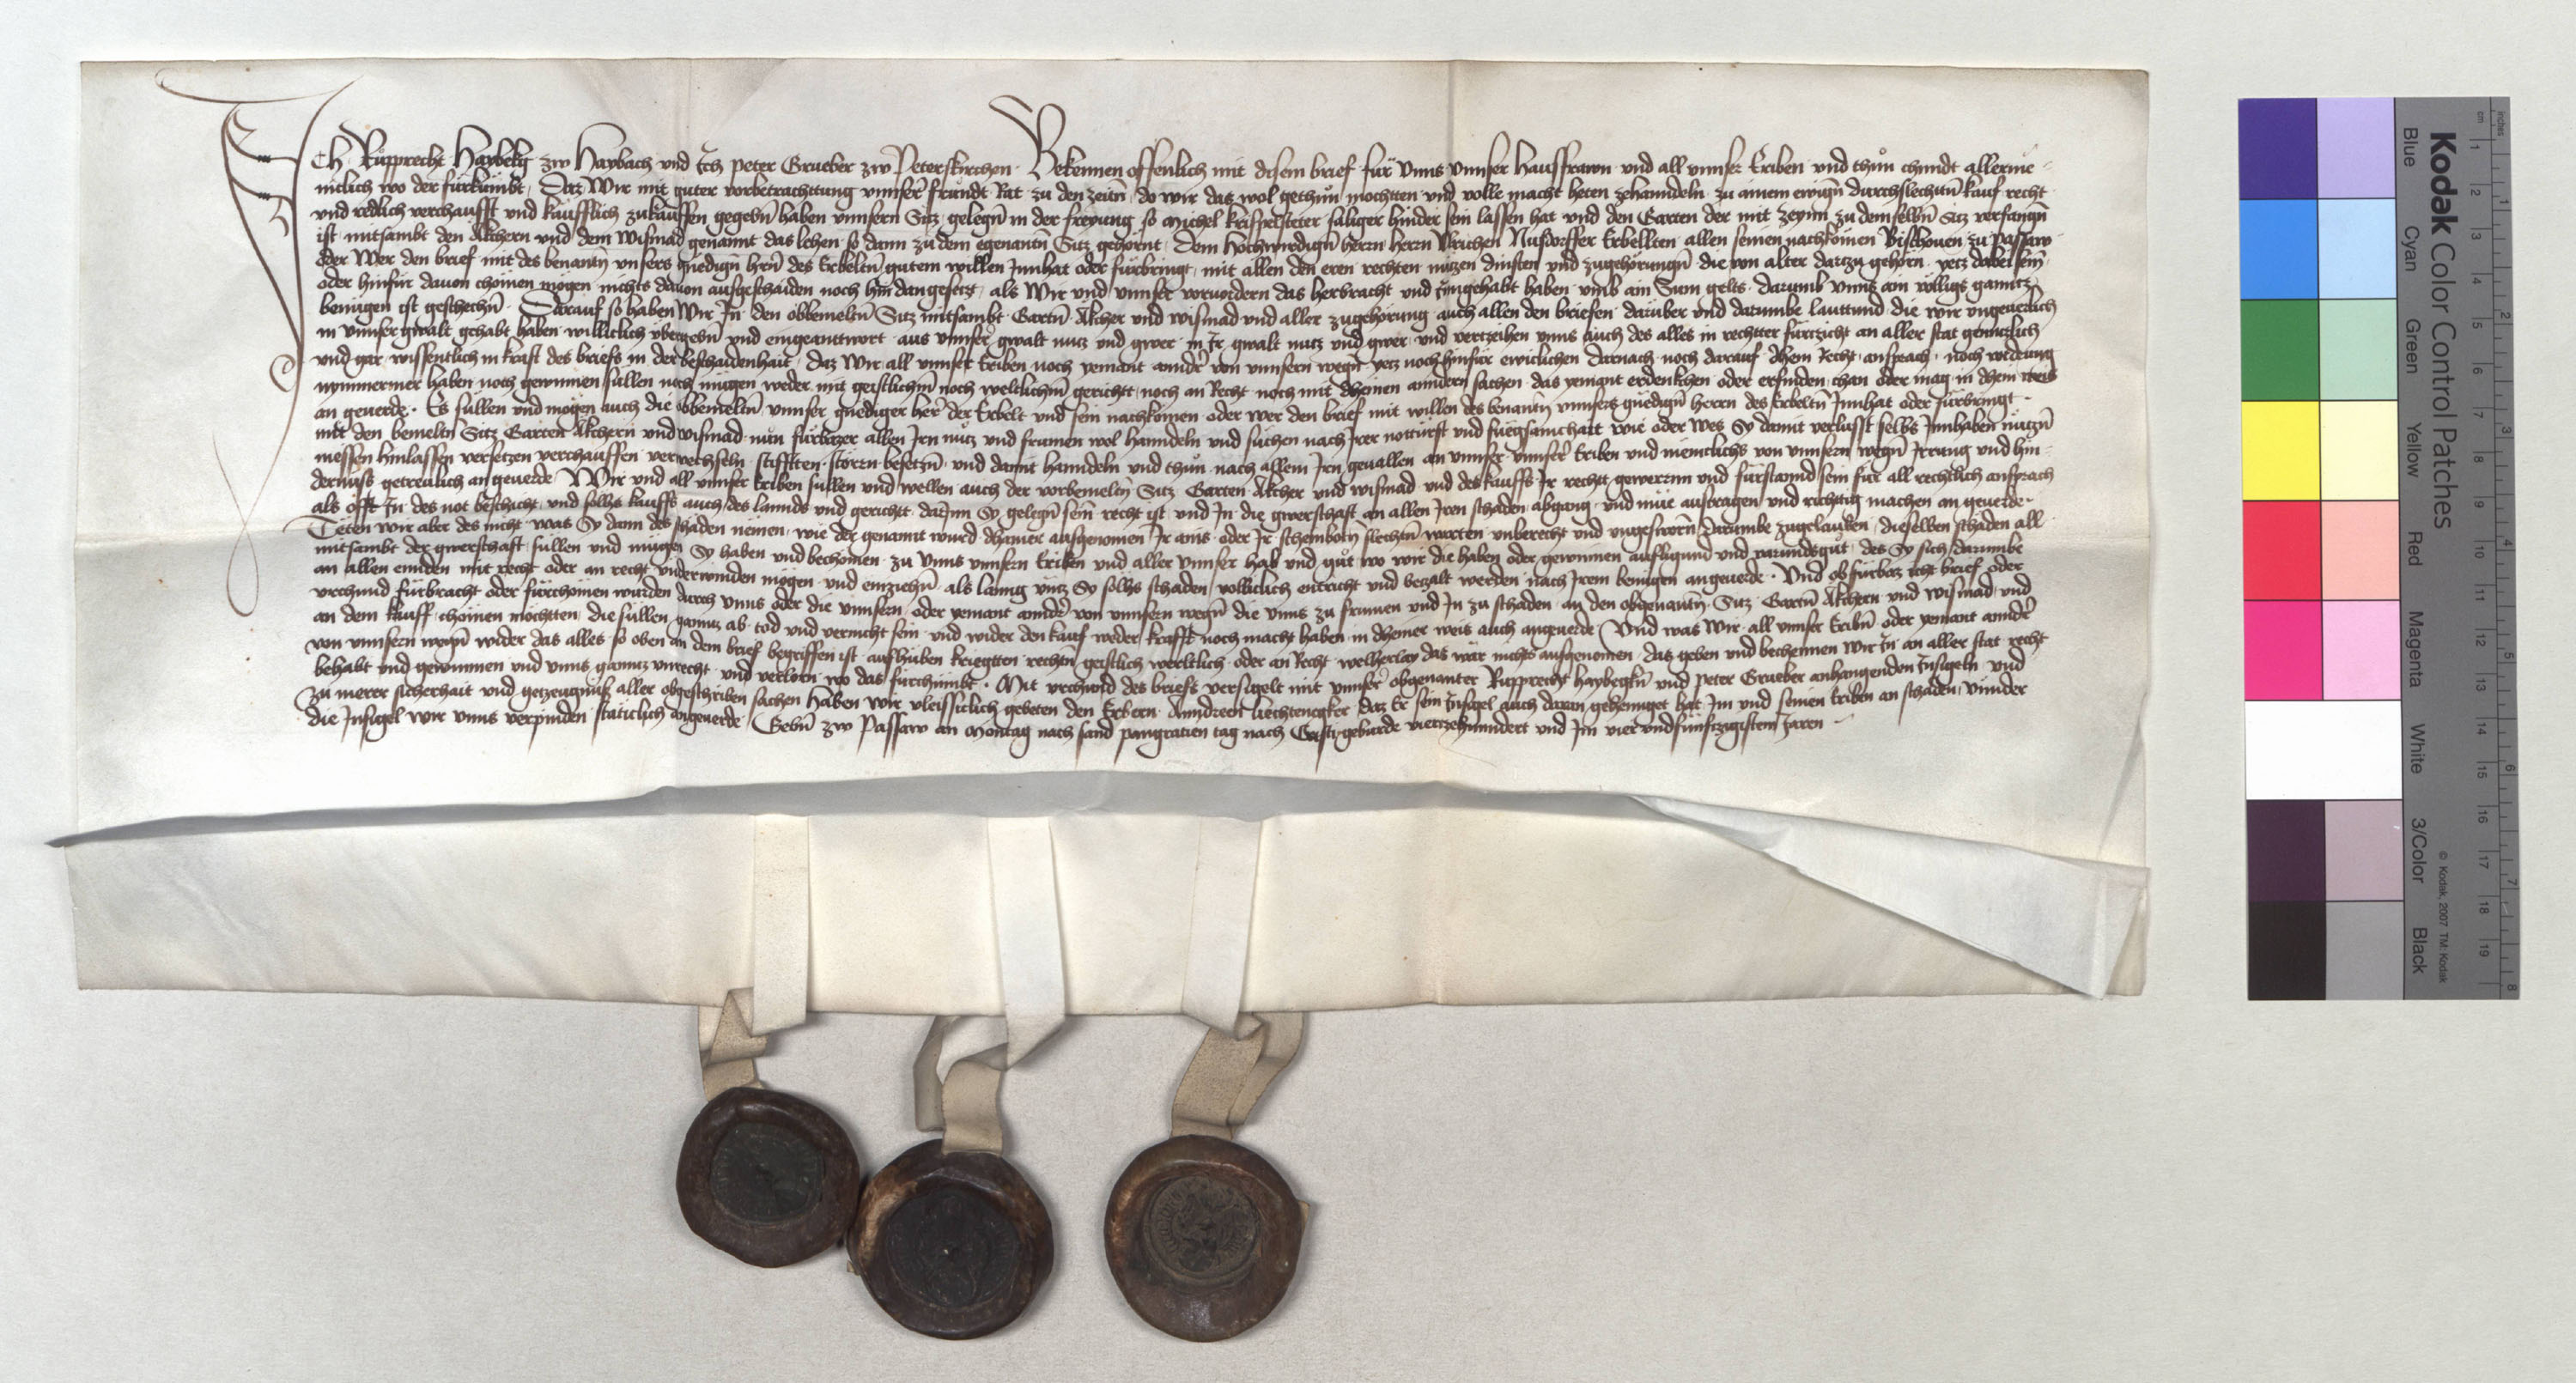 Ich Rupprecht Haybekg zw Haybach und Ich Peter Grueber zw Peterskirchen Bekennen offenlich mit disem brief für Unns Unnser Hausfrawn und all unnser Erben und thun chundt allerme-
niclich wo der fürkumbt Daz Wir mit guter vorbetrachttung unnserr frundt Rat zu den zeitn do wir das wol gethun mochtten und volle macht heten zehanndeln zu ainem ewign durchslechtn kauf recht
und redlich verchaufft und kaufflich zukauffen gegebn haben unnsern Sitz gelegn in der freyung so Michel saliger hinder sein lassen hat und den Garten der mit zeynn zu demselbn Sitz verfangn
ist mitsambt den Akhern und dem Wismad genannt das lehen so dann zu dem egenantn Sitz gehornt Dem Hochwirdign herrn herrn Ulrichen Nusdorffer Erbellten allen seinen nachkomen Bischouen zu Passaw
oder Wer den brief mit des benantn unsers gnedign hrn des Erbeltn gutem willen Innhat oder fürbringt mit allen den eren rechten nutzen dinsten und zugehorungn die von alter dartzu gehorn yetz dabei sein
oder hinfür dauon chömen mögen nichts dauon ausgeschaiden noch hindan gesetzt als Wir und unnser voruordern das herbracht und Inngehabt haben umb ain Sum gelts darumb unns ain völligs ganntz
benügen ist geschechn Darauf so haben Wir In den obbemeltn Sitz mitsambt Gartn Akher und wismad und aller zugehörung auch allen den briefen darüber und darumbe lauttund die wir ungeuerlich
in unnser gwalt gehabt haben williclich übergebn und eingeanttwort aus unnserr gwalt nutz und gwer in Ir gwalt nutz und gwer und vertzeihen unns auch des alles in rechtter fürtzicht an aller stat genntzlich
und gar wissentlich in kraft des briefs in der beschaidenhait Daz Wir all unnser Erben noch yemant annder von unnsern wegn yetz noch hinfür ewiclichen darnach noch darauf dhein Recht ansprach noch vordrung
nymmermer haben noch gewinnen süllen noch mügen weder mit geistlichm noch weltlichm gerichtt noch an Recht noch mit dheinen anndern sachen das yemant erdenkchen oder erfinden chan oder mag in dhein weis
an geuerde Es süllen und mögen auch die obbemeltn unnser gnediger her der Erbelt und sein nachkomen oder wer den brief mit willen des benantn unnsers gnedign herrn des Erbeltn Innhat oder fürbringt
mit den bemeltn Sitz Garten Akhern und wismad nun fürbazer allen Irn nutz und frumen wol hanndeln und suchen nach Irer notturft und füegsamchait wie oder Wes Sy damit verlusst selbs Innhaben nutzn
niessen hinlassen versetzen verchauffen verwechseln stifften störrn besetzn und damit hanndeln und thun nach allem Irn geuallen an unnser unnserr Erben und niemtlichs von unnsern wegn Irrung und hin-
dernüss getreulich an geuerde Wir und all unnser Erben süllen und wellen auch der vorbemeltn Sitz Garten Akher und wismad und des kauffs Ir rechtt geweren und fürstannd sein für all rechtlich ansprach
als offt In des not beschicht und solhs kauffs auch des lannds und gericht darinn Sy gelegn sein recht ist und In die gwerschaft an allen Iren schaden abgang und müe austragen und richttig machen an geuerde
Teten wir aber des nicht was Sy dann des schaden nemen wie der genannt wurd dhainer ausgenomen Ir ains oder Ir scheinboten slechtn wortten unberecht und ungesworn darumbe zugelauben dieselben schäden all
mitsambt der gwerschaft süllen und mügen Sy haben und bechömen zu Unns unnsern Erben und aller unnser hab und gut wo wir die haben oder gewinnen aufligund und varundsgut des Sy sich darumbe
an allen ennden mit recht oder an recht underwinden mögen und einziehn als lanng üntz Sy solhs schaden volliclich entricht und betzalt werden nach Irem benügen angeuerde Und ob fürbaz icht brief oder
urchund fürbracht oder fürchömen würden durch unns oder die unnsern oder yemant annder von unnsern wegn die unns zu frumen und In zu schaden an den obgenantn Sitz Gartn Akhern und wismad und
an dem kauff chömen möchtten die süllen ganntz ab tod und vernicht sein und wider den kauf weder krafft noch macht haben in dheiner weis auch angeuerde Und was Wir all unnser Erbn oder yemant annder
von unnsern wegn wider das alles so oben an dem brief begriffen ist aufhüben kriegtten rechtn geistlich werltlich oder an Recht welherlay das wär nichts ausgenomen das geben und bechennen wir In an aller stat recht
behabt und gewunnen und unns ganntz unrecht und verlorn wo das fürchümbt Mit urchund des briefs versigelt mit unnserr obgenanter Rupprecht haybegkn und Peter Grueber anhangenden Insigeln und
zu merer sicherhait und getzeugnüss aller obgeschriben sachen haben wir vleissiclich gebeten den Erbern Anndreen liechtenegker daz Er sein Insigel auch daran gehennget hat Im und seinen Erben an schaden unnder
die Insigel wir unns verpinden stäticlich angeuerde Gebn zw Passaw an Montag nach sand pangratien tag nach Cristi geburde viertzehunndert und Im vier und fünftzigistem Jaren
Kodak Color Control Patches
Blue Cyan Green Yellow Red Magenta White 3/Color Black
© Kodak, 2007 TM: Kodak
cm 1 2 3 4 5 6 7 8 9 10 11 12 13 14 15 16 17 18 19
inches 1 2 3 4 5 6 7 8